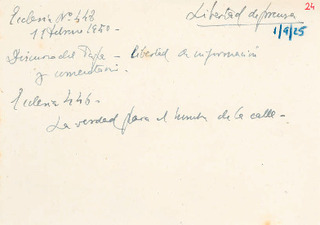 24
Libertad de prensa
1/9/25
Ecclesia Nº 448
11 Febrero 1950 -
Discurso del Papa - libertad de información
y comentario.
Ecclesia 446 -
La verdad para el hombre de la calle -